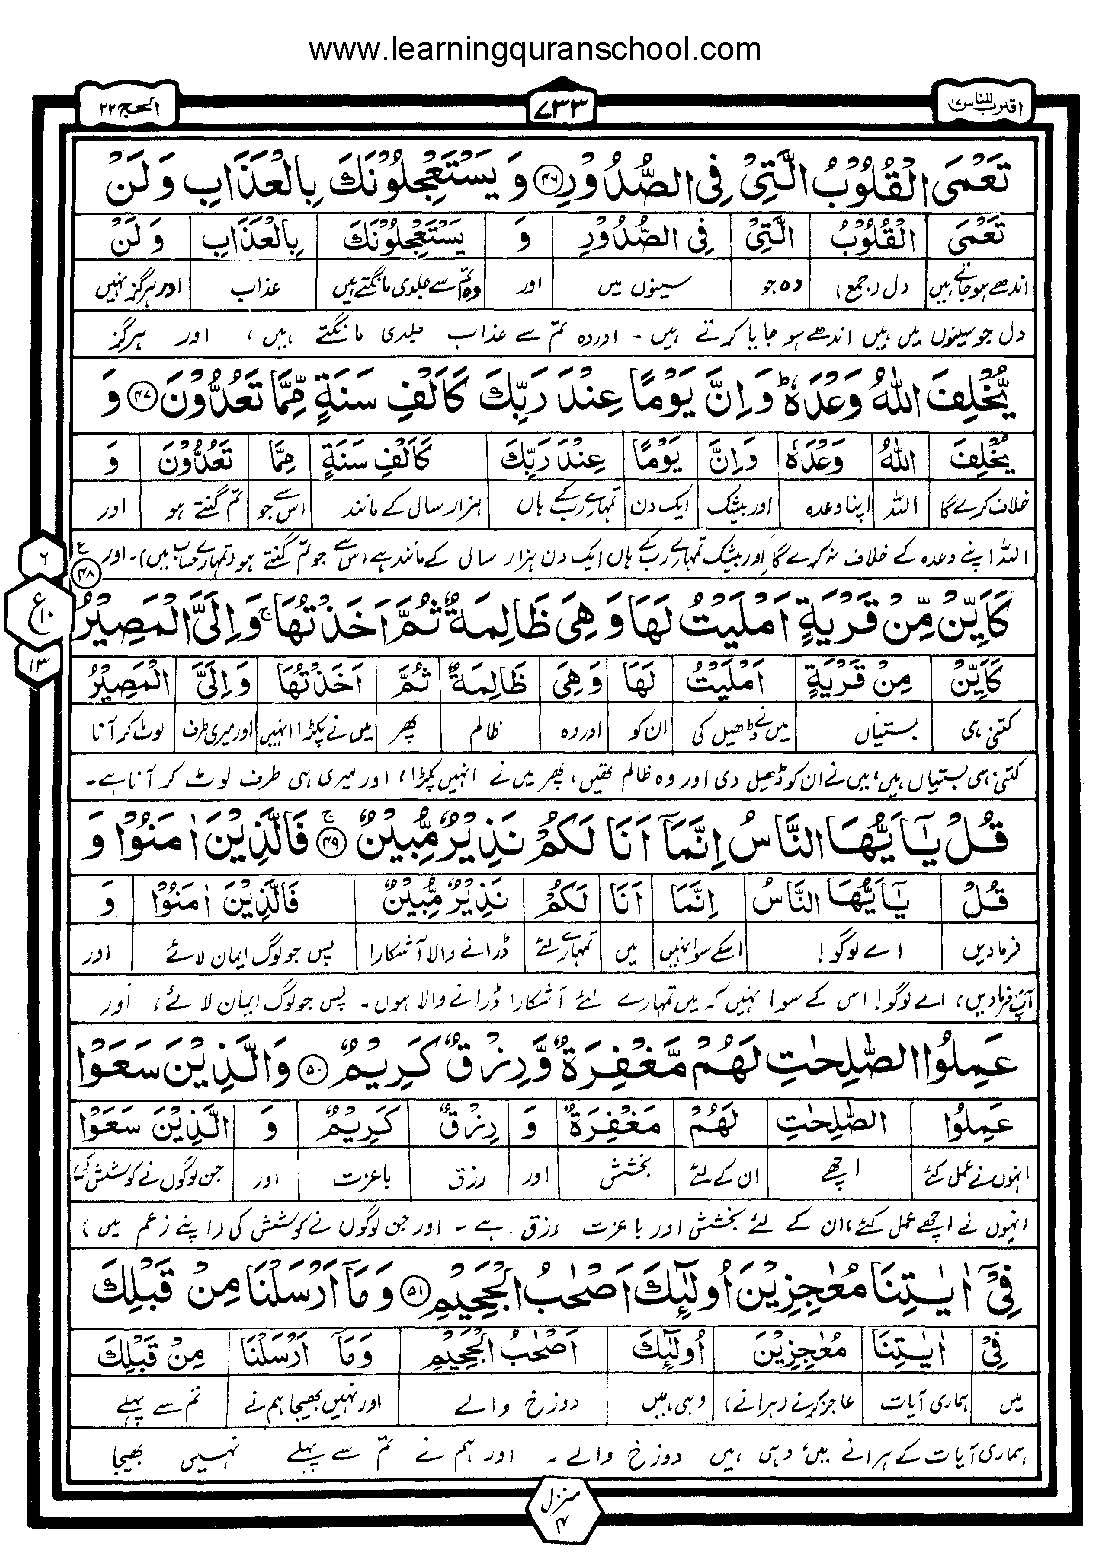 www.learningquranschool.com
اقترب للناس ۱۷ ۷۳۳ الحج ۲۲
تَعْمَى الْقُلُوْبُ الَّتِىْ فِى الصُّدُوْرِ ﴿۴۶﴾ وَ يَسْتَعْجِلُوْنَكَ بِالْعَذَابِ وَ لَنْ
تَعْمَى الْقُلُوْبُ الَّتِىْ فِى الصُّدُوْرِ وَ يَسْتَعْجِلُوْنَكَ بِالْعَذَابِ وَ لَنْ
اندھے ہوجاتے ہیں دل (جمع) وہ جو سینوں میں اور وہ تم سے جلدی مانگتے ہیں عذاب اور ہرگز نہیں
دل جو سینوں میں ہیں اندھے ہو جایا کرتے ہیں ۔ اور وہ تم سے عذاب جلدی مانگتے ہیں، اور ہرگز
يُّخْلِفَ اللّٰهُ وَعْدَهٗ ؕ وَ اِنَّ يَوْمًا عِنْدَ رَبِّكَ كَاَلْفِ سَنَةٍ مِّمَّا تَعُدُّوْنَ ﴿۴۷﴾ وَ
يُّخْلِفَ اللّٰهُ وَعْدَهٗ وَ اِنَّ يَوْمًا عِنْدَ رَبِّكَ كَاَلْفِ سَنَةٍ مِّمَّا تَعُدُّوْنَ وَ
خلاف کرے گا اللہ اپنا وعدہ اور بیشک ایک دن تمہارے رب کے ہاں ہزار سال کے مانند اس سے جو تم گنتے ہو اور
اللہ اپنے وعدہ کے خلاف نہ کرے گا اور بیشک تمہارے رب کے ہاں ایک دن ہزار سال کے مانند ہے (اس سے جو تم گنتے ہو (تمہارے حساب میں)۔ اور
۶
ع ۱۰
۱۳
كَاَيِّنْ مِّنْ قَرْيَةٍ اَمْلَيْتُ لَهَا وَ هِىَ ظَالِمَةٌ ثُمَّ اَخَذْتُهَا ۚ وَ اِلَىَّ الْمَصِيْرُ ﴿۴۸﴾
كَاَيِّنْ مِنْ قَرْيَةٍ اَمْلَيْتُ لَهَا وَ هِىَ ظَالِمَةٌ ثُمَّ اَخَذْتُهَا وَ اِلَىَّ الْمَصِيْرُ
کتنی ہی بستیاں میں نے ڈھیل کی ان کو اور وہ ظالم پھر میں نے پکڑا انہیں اور میری طرف لوٹ کر آنا
کتنی ہی بستیاں ہیں، میں نے ان کو ڈھیل دی اور وہ ظالم تھیں، پھر میں نے انہیں پکڑا، اور میری ہی طرف لوٹ کر آنا ہے۔
قُلْ يٰۤاَيُّهَا النَّاسُ اِنَّمَاۤ اَنَا لَكُمْ نَذِيْرٌ مُّبِيْنٌ ﴿۴۹﴾ فَالَّذِيْنَ اٰمَنُوْا وَ
قُلْ يٰۤاَيُّهَا النَّاسُ اِنَّمَا اَنَا لَكُمْ نَذِيْرٌ مُّبِيْنٌ فَالَّذِيْنَ اٰمَنُوْا وَ
فرمادیں اے لوگو! اسکے سوا نہیں میں تمہارے لئے ڈرانے والا آشکارا پس جو لوگ ایمان لائے اور
آپ فرمادیں، اے لوگو! اس کے سوا نہیں کہ میں تمہارے لئے آشکارا ڈرانے والا ہوں۔ پس جو لوگ ایمان لائے، اور
عَمِلُوا الصّٰلِحٰتِ لَهُمْ مَّغْفِرَةٌ وَّ رِزْقٌ كَرِيْمٌ ﴿۵۰﴾ وَ الَّذِيْنَ سَعَوْا
عَمِلُوا الصّٰلِحٰتِ لَهُمْ مَغْفِرَةٌ وَ رِزْقٌ كَرِيْمٌ وَ الَّذِيْنَ سَعَوْا
انہوں نے عمل کئے اچھے ان کے لئے بخشش اور رزق باعزت اور جن لوگوں نے کوشش کی
انہوں نے اچھے عمل کئے، ان کے لئے بخشش اور باعزت رزق ہے ۔ اور جن لوگوں نے کوشش کی (اپنے زعم میں)
فِىْۤ اٰيٰتِنَا مُعٰجِزِيْنَ اُولٰٓئِكَ اَصْحٰبُ الْجَحِيْمِ ﴿۵۱﴾ وَ مَاۤ اَرْسَلْنَا مِنْ قَبْلِكَ
فِىْ اٰيٰتِنَا مُعٰجِزِيْنَ اُولٰٓئِكَ اَصْحٰبُ الْجَحِيْمِ وَ مَاۤ اَرْسَلْنَا مِنْ قَبْلِكَ
میں ہماری آیات عاجز کرنے (ہرانے) وہی ہیں دوزخ والے اور نہیں بھیجا ہم نے تم سے پہلے
ہماری آیات کے ہرانے میں، وہی ہیں دوزخ والے ۔ اور ہم نے تم سے پہلے نہیں بھیجا
منزل ۴